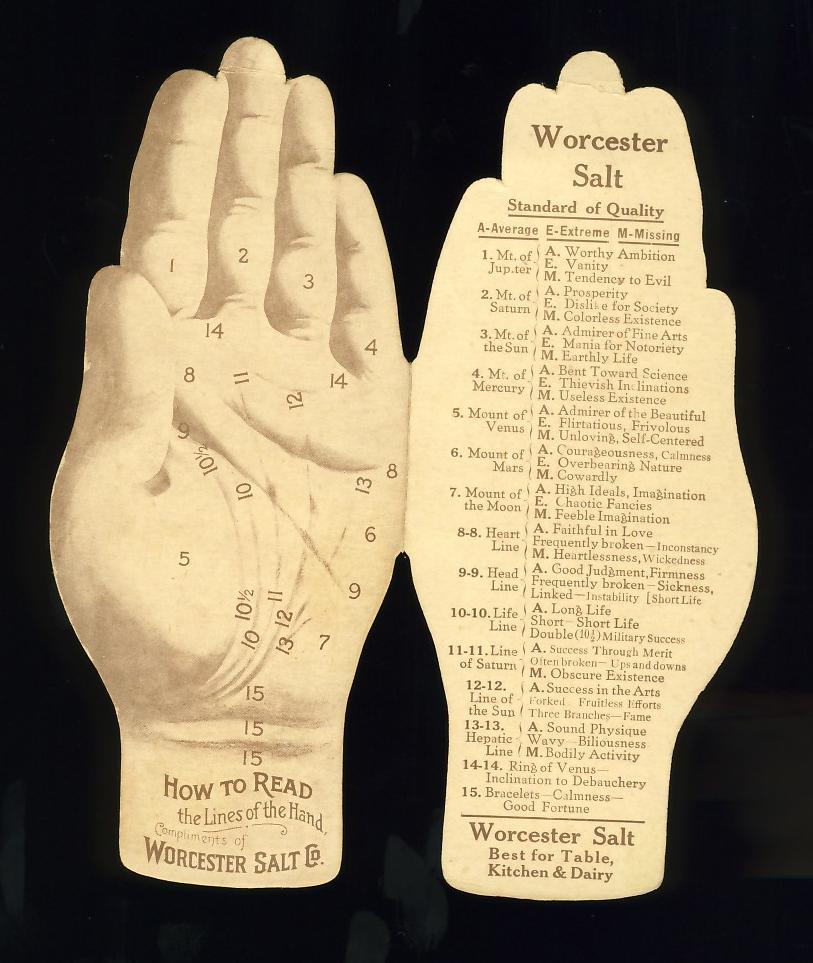 1
2
3
4
14
8
11
12
14
9
10½
10
8
13
6
5
9
10½
11
12
10
13
7
15
15
15
HOW TO READ
the Lines of the Hand,
Compliments of
WORCESTER SALT CO.
Worcester
Salt
Standard of Quality
A-Average E-Extreme M-Missing
1. Mt. of Jupiter
A. Worthy Ambition
E. Vanity
M. Tendency to Evil
2. Mt. of Saturn
A. Prosperity
E. Dislike for Society
M. Colorless Existence
3. Mt. of the Sun
A. Admirer of Fine Arts
E. Mania for Notoriety
M. Earthly Life
4. Mt. of Mercury
A. Bent Toward Science
E. Thievish Inclinations
M. Useless Existence
5. Mount of Venus
A. Admirer of the Beautiful
E. Flirtatious, Frivolous
M. Unloving, Self-Centered
6. Mount of Mars
A. Courageousness, Calmness
E. Overbearing Nature
M. Cowardly
7. Mount of the Moon
A. High Ideals, Imagination
E. Chaotic Fancies
M. Feeble Imagination
8-8. Heart Line
A. Faithful in Love
Frequently broken—Inconstancy
M. Heartlessness, Wickedness
9-9. Head Line
A. Good Judgment, Firmness
Frequently broken—Sickness,
Linked—Instability [Short Life
10-10. Life Line
A. Long Life
Short—Short Life
Double (10½) Military Success
11-11. Line of Saturn
A. Success Through Merit
Often broken—Ups and downs
M. Obscure Existence
12-12. Line of the Sun
A. Success in the Arts
Forked—Fruitless Efforts
Three Branches—Fame
13-13. Hepatic Line
A. Sound Physique
Wavy—Biliousness
M. Bodily Activity
14-14. Ring of Venus—
Inclination to Debauchery
15. Bracelets—Calmness—
Good Fortune
Worcester Salt
Best for Table,
Kitchen & Dairy